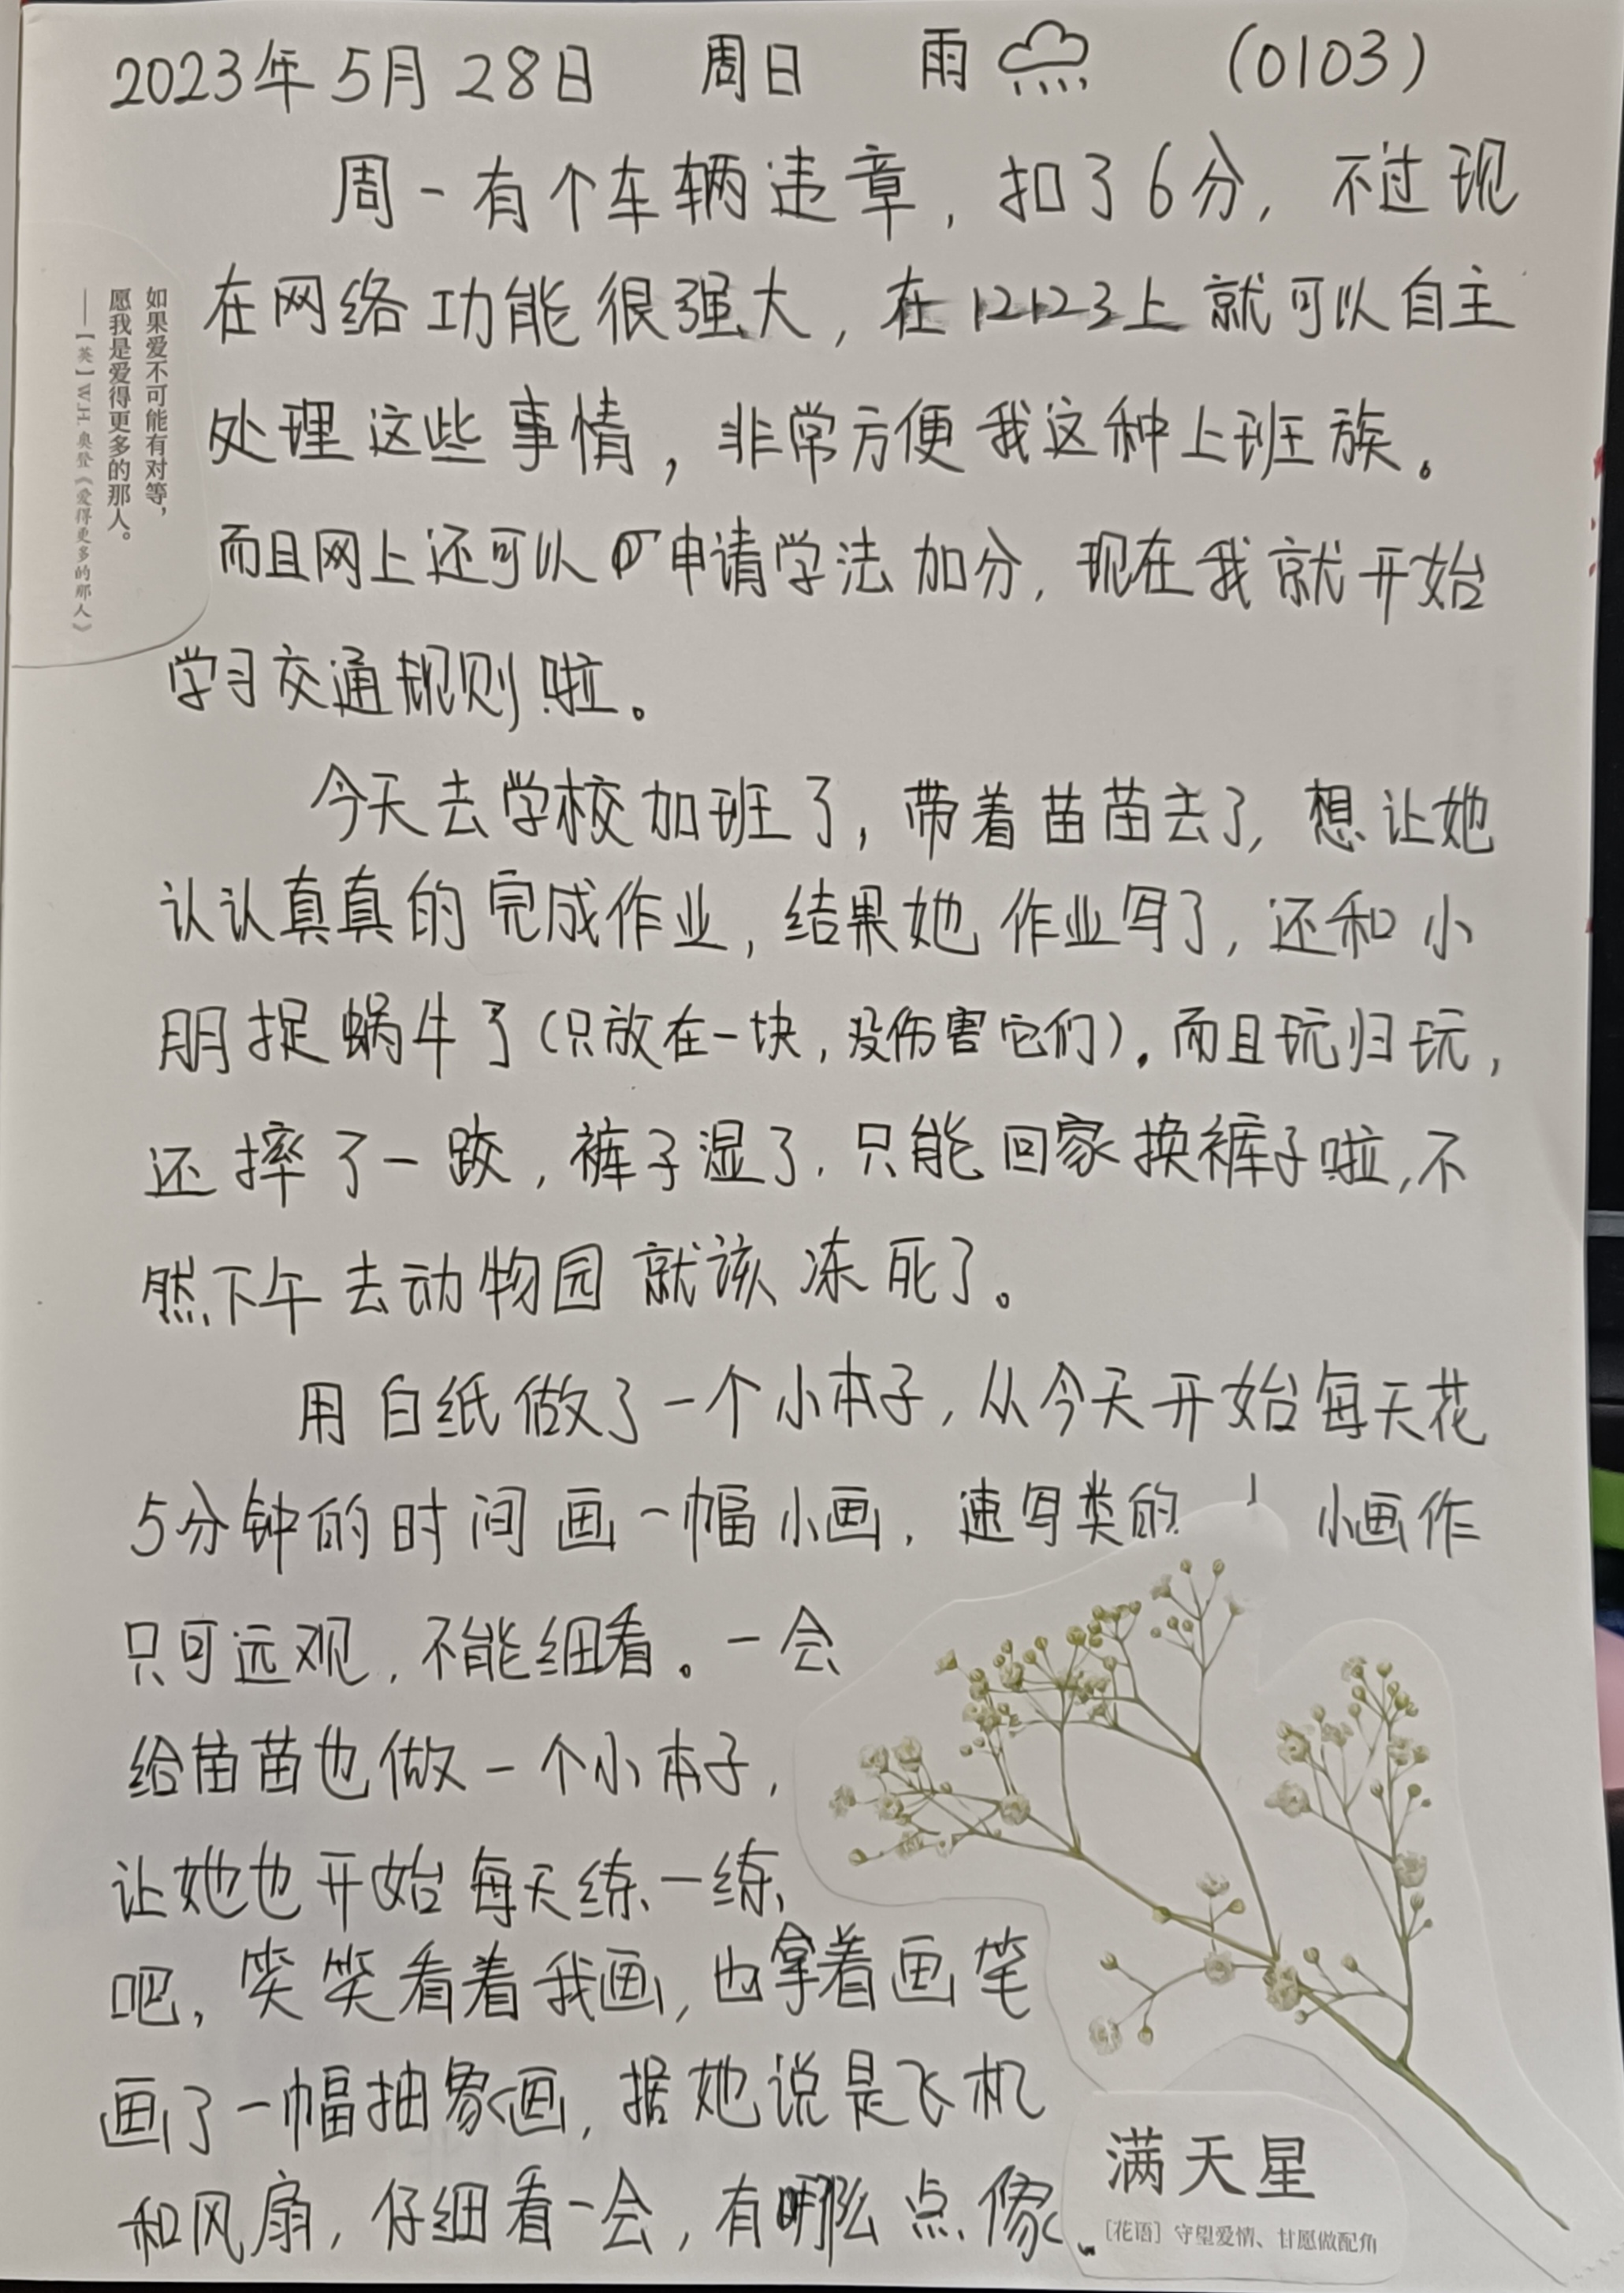 2023年5月28日 周日 雨 (0103)
周一有个车辆违章，扣了6分，不过现
在网络功能很强大，在12123上就可以自主
处理这些事情，非常方便我这种上班族。
而且网上还可以申请学法加分，现在我就开始
学习交通规则啦。
今天去学校加班了，带着苗苗去了，想让她
认认真真的完成作业，结果她作业写了，还和小
朋捉蜗牛了（只放在一块，没伤害它们）。而且玩归玩，
还摔了一跤，裤子湿了，只能回家换裤子啦，不
然下午去动物园就该冻死了。
用白纸做了一个小本子，从今天开始每天花
5分钟的时间画一幅小画，速写类的 小画作
只可远观，不能细看。一会
给苗苗也做一个小本子，
让她也开始每天练一练
吧，笑笑看着我画，也拿着画笔
画了一幅抽象画，据她说是飞机
和风扇，仔细看一会，有那么点像。
如果爱不可能有对等，
愿我是爱得更多的那人。
——【英】W.H. 奥登《爱得更多的那人》
满天星
［花语］守望爱情、甘愿做配角